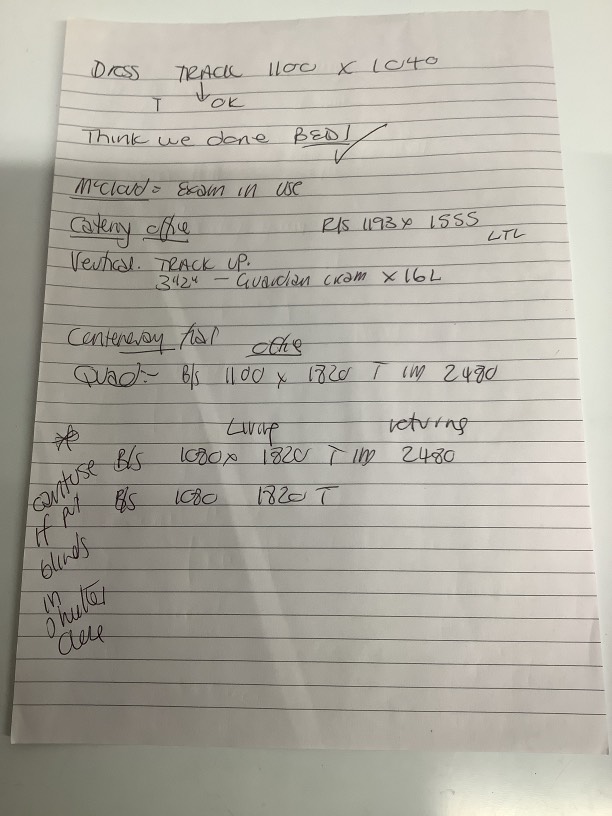 Dress TRACK 1100 x 1040
T OK
Think we done BED!
McClaud = Exam in use
Cateny office R/s 1193 x 1555
LTL
Vertical. TRACK UP.
3424 - Guardian cream x 16L
hal office
Quad:- B/s 1100 x 1820 T 1M 2480
Living returns
* B/s 1080 x 1820 T 1M 2480
B/s 1080 1820 T
cantuse
if put
blinds
in
Shutter